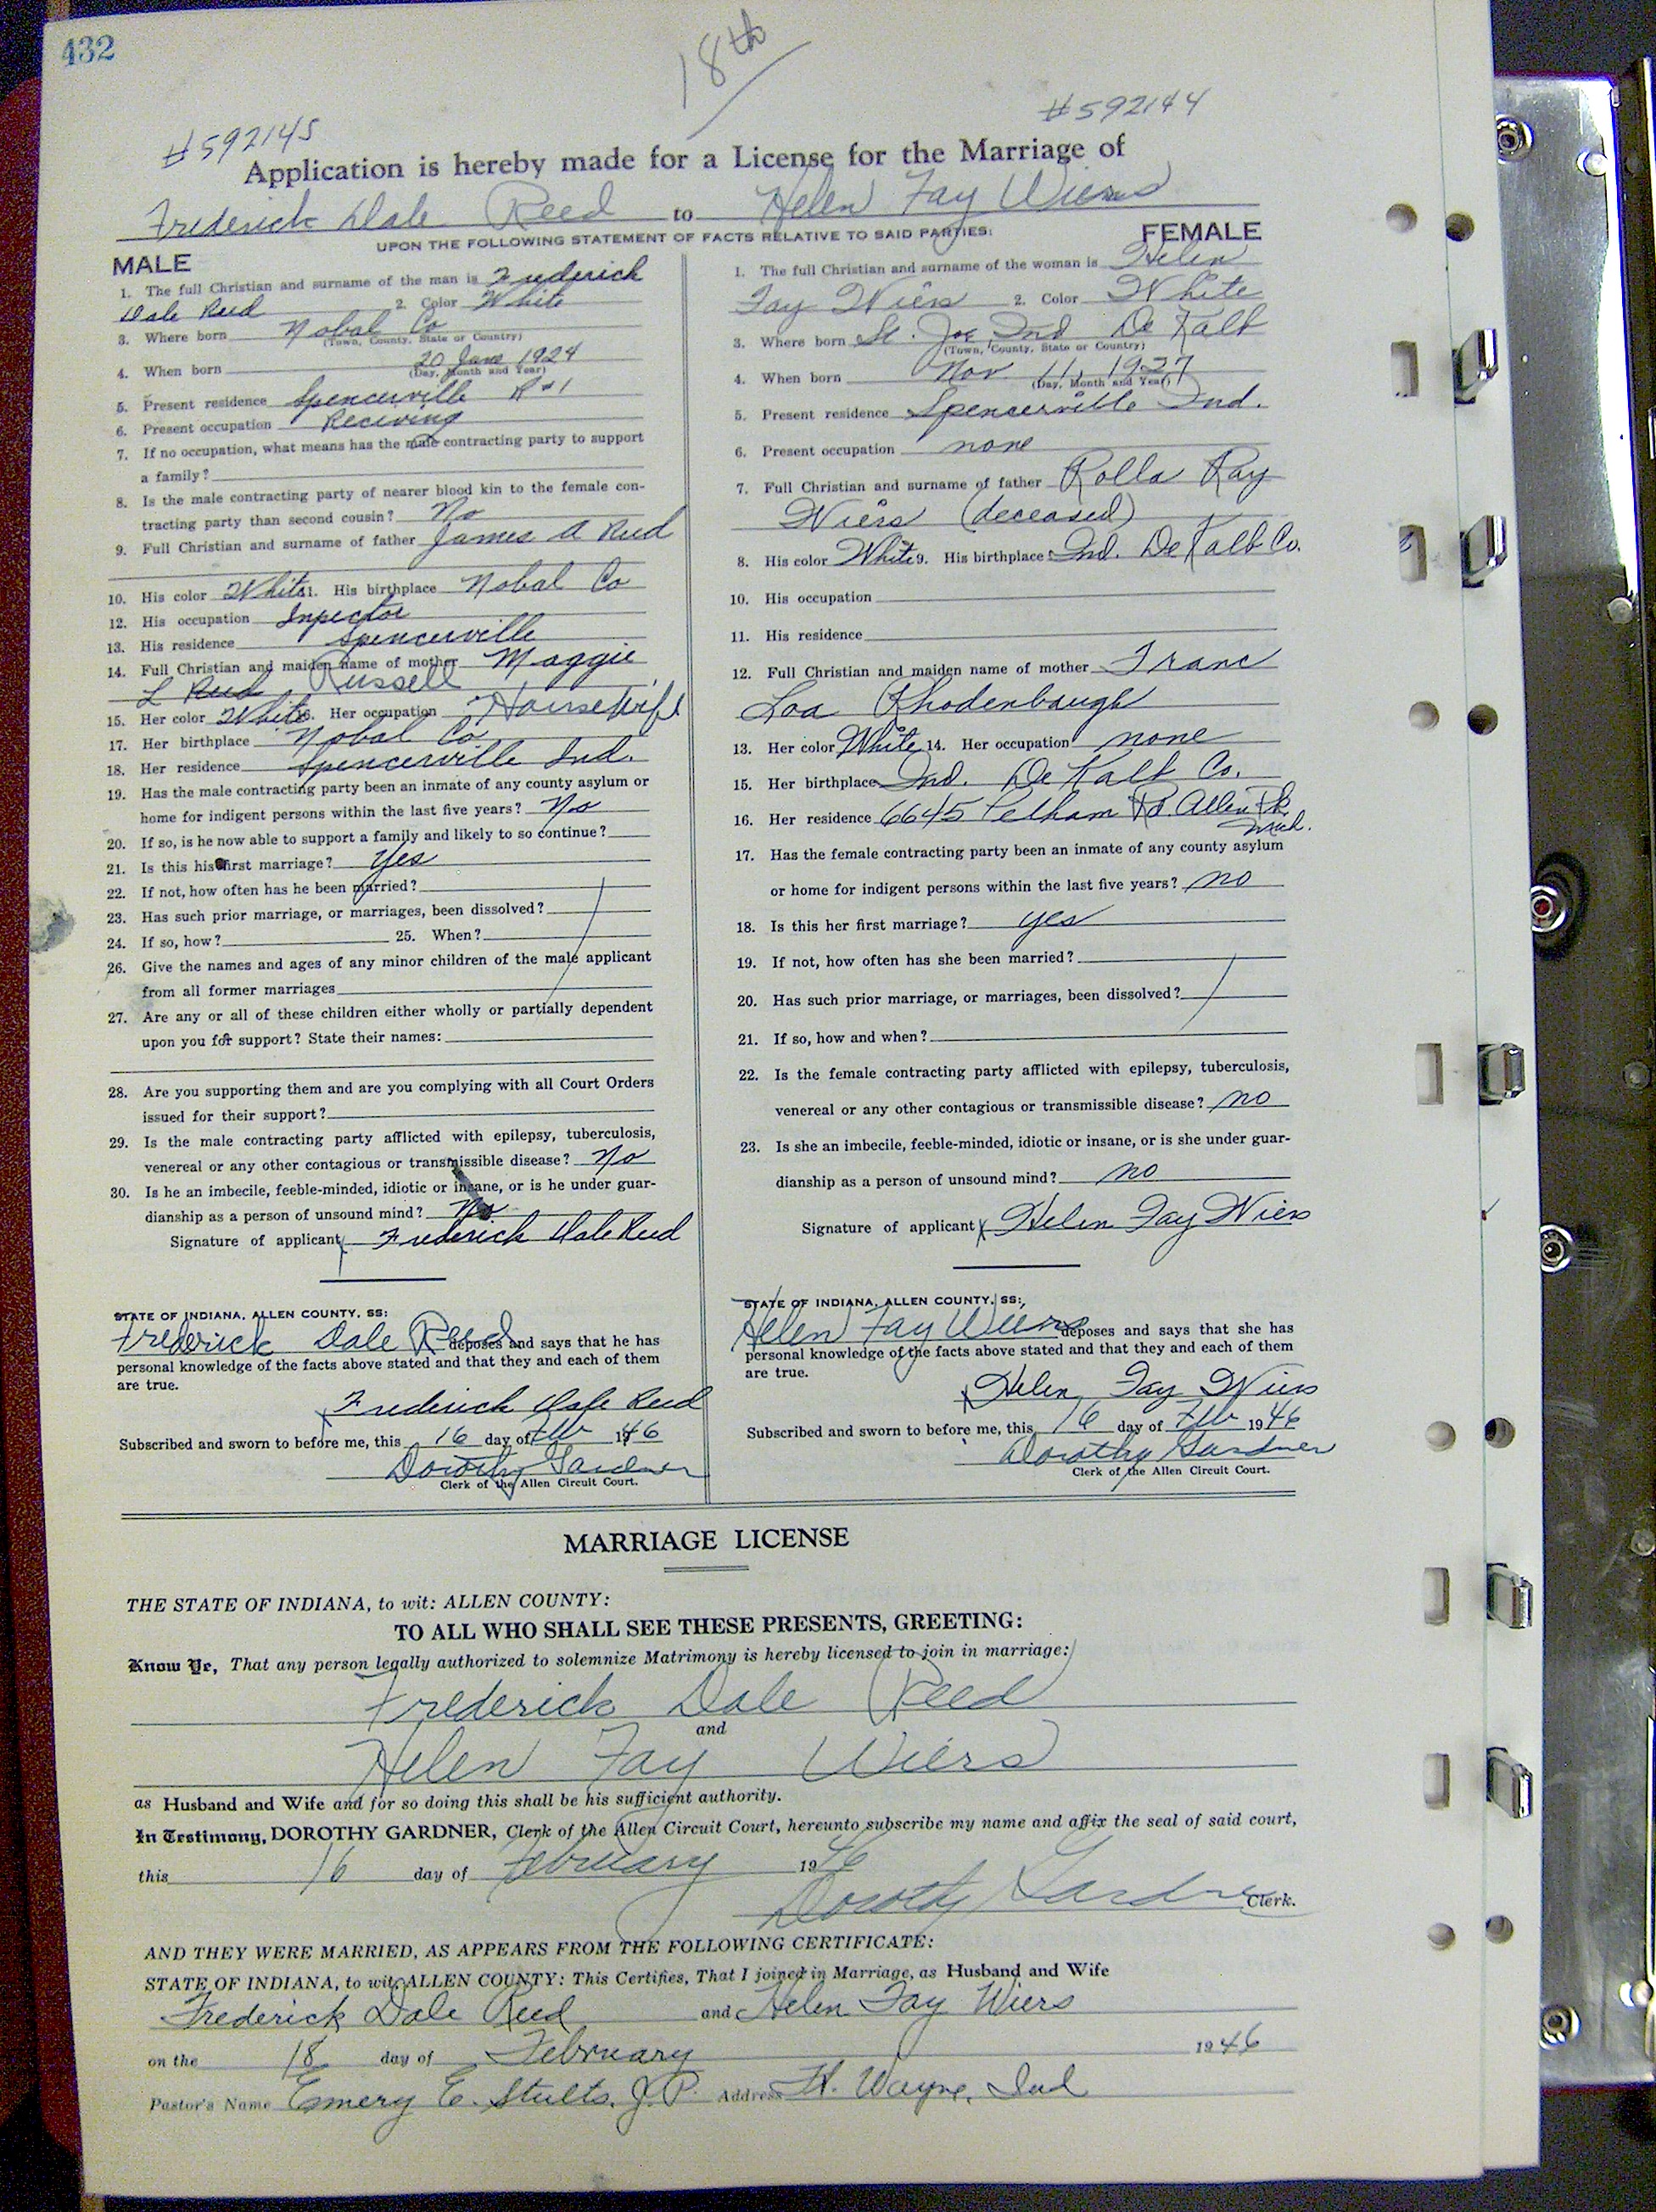 432
18th
#592145
#592144
Application is hereby made for a License for the Marriage of
Frederick Dale Reed to Helen Fay Wiers
UPON THE FOLLOWING STATEMENT OF FACTS RELATIVE TO SAID PARTIES:
MALE
1. The full Christian and surname of the man is Frederick
Dale Reed 2. Color White
3. Where born Nobal Co
(Town, County, State or Country)
4. When born 20 June 1924
(Day, Month and Year)
5. Present residence Spencerville R#1
6. Present occupation Receiving
7. If no occupation, what means has the male contracting party to support
a family?
8. Is the male contracting party of nearer blood kin to the female con-
tracting party than second cousin? No
9. Full Christian and surname of father James A Reed
10. His color White 11. His birthplace Nobal Co
12. His occupation Inpector
13. His residence Spencerville
14. Full Christian and maiden name of mother Maggie
L Reed Russell
15. Her color White 16. Her occupation Housewife
17. Her birthplace Nobal Co
18. Her residence Spencerville Ind.
19. Has the male contracting party been an inmate of any county asylum or
home for indigent persons within the last five years? No
20. If so, is he now able to support a family and likely to so continue?
21. Is this his first marriage? Yes
22. If not, how often has he been married?
23. Has such prior marriage, or marriages, been dissolved?
24. If so, how? 25. When?
26. Give the names and ages of any minor children of the male applicant
from all former marriages
27. Are any or all of these children either wholly or partially dependent
upon you for support? State their names:
28. Are you supporting them and are you complying with all Court Orders
issued for their support?
29. Is the male contracting party afflicted with epilepsy, tuberculosis,
venereal or any other contagious or transmissible disease? No
30. Is he an imbecile, feeble-minded, idiotic or insane, or is he under guar-
dianship as a person of unsound mind? No
Signature of applicant x Frederick Dale Reed
STATE OF INDIANA, ALLEN COUNTY, SS:
Frederick Dale Reed deposes and says that he has
personal knowledge of the facts above stated and that they and each of them
are true.
x Frederick Dale Reed
Subscribed and sworn to before me, this 16 day of Feb 1946
Dorothy Gardner
Clerk of the Allen Circuit Court.
FEMALE
1. The full Christian and surname of the woman is Helen
Fay Wiers 2. Color White
3. Where born St. Joe, Ind De Kalb
(Town, County, State or Country)
4. When born Nov 11, 1927
(Day, Month and Year)
5. Present residence Spencerville Ind.
6. Present occupation none
7. Full Christian and surname of father Rolla Ray
Wiers (deceased)
8. His color White 9. His birthplace Ind. De Kalb Co.
10. His occupation
11. His residence
12. Full Christian and maiden name of mother Franc
Loa Rhodenbaugh
13. Her color White 14. Her occupation none
15. Her birthplace Ind. De Kalb Co.
16. Her residence 6645 Pelham Rd. Allen Pk.
Mich.
17. Has the female contracting party been an inmate of any county asylum
or home for indigent persons within the last five years? no
18. Is this her first marriage? yes
19. If not, how often has she been married?
20. Has such prior marriage, or marriages, been dissolved?
21. If so, how and when?
22. Is the female contracting party afflicted with epilepsy, tuberculosis,
venereal or any other contagious or transmissible disease? no
23. Is she an imbecile, feeble-minded, idiotic or insane, or is she under guar-
dianship as a person of unsound mind? no
Signature of applicant x Helen Fay Wiers
STATE OF INDIANA, ALLEN COUNTY, SS:
Helen Fay Wiers deposes and says that she has
personal knowledge of the facts above stated and that they and each of them
are true.
x Helen Fay Wiers
Subscribed and sworn to before me, this 16 day of Feb 1946
Dorothy Gardner
Clerk of the Allen Circuit Court.
MARRIAGE LICENSE
THE STATE OF INDIANA, to wit: ALLEN COUNTY:
TO ALL WHO SHALL SEE THESE PRESENTS, GREETING:
Know Ye, That any person legally authorized to solemnize Matrimony is hereby licensed to join in marriage:
Frederick Dale Reed
and
Helen Fay Wiers
as Husband and Wife and for so doing this shall be his sufficient authority.
In Testimony, DOROTHY GARDNER, Clerk of the Allen Circuit Court, hereunto subscribe my name and affix the seal of said court,
this 16 day of February 1946
Dorothy Gardner Clerk.
AND THEY WERE MARRIED, AS APPEARS FROM THE FOLLOWING CERTIFICATE:
STATE OF INDIANA, to wit: ALLEN COUNTY: This Certifies, That I joined in Marriage, as Husband and Wife
Frederick Dale Reed and Helen Fay Wiers
on the 18 day of February 1946
Pastor's Name Emery E. Stults, J.P. Address Ft. Wayne, Ind